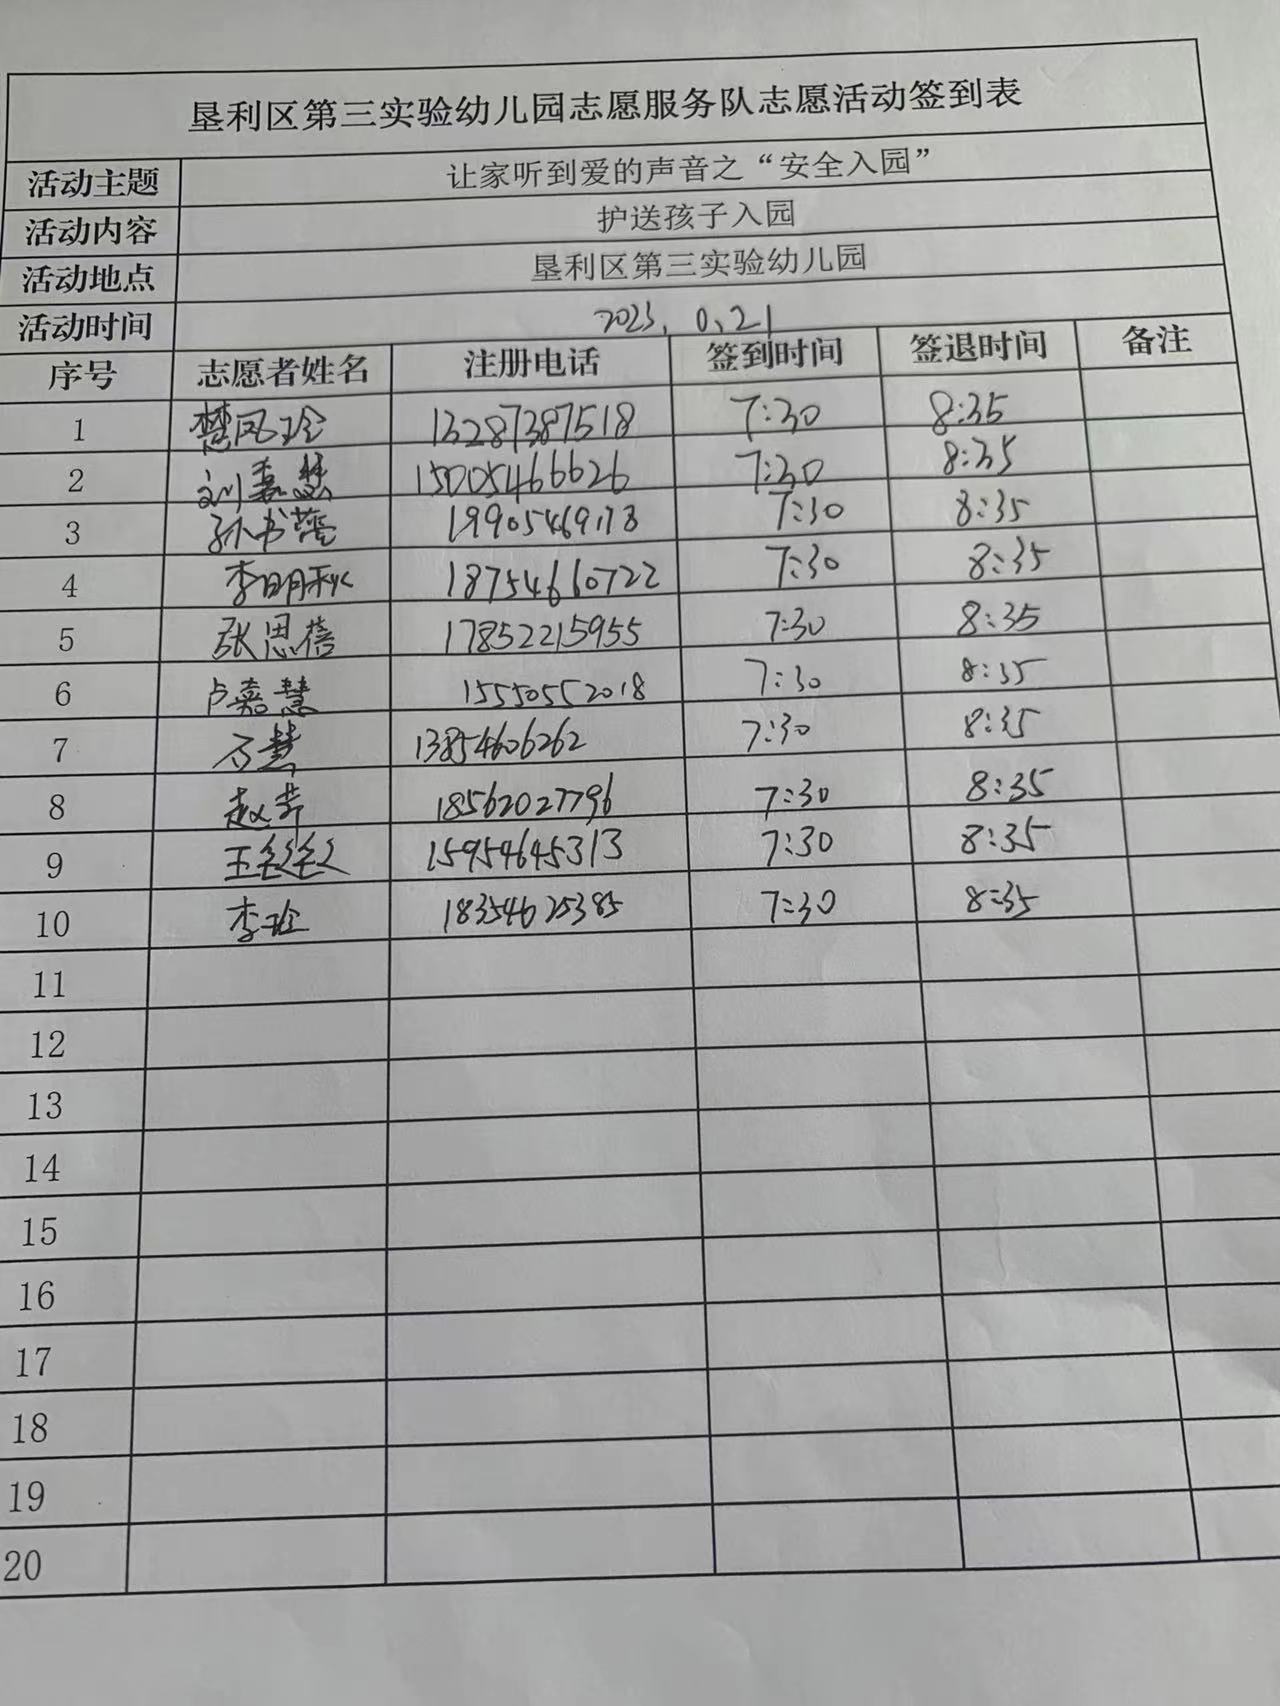 垦利区第三实验幼儿园志愿服务队志愿活动签到表
活动主题 让家听到爱的声音之“安全入园”
活动内容 护送孩子入园
活动地点 垦利区第三实验幼儿园
活动时间 2023. 0.21
序号 志愿者姓名 注册电话 签到时间 签退时间 备注
1 楚凤玲 13287387518 7:30 8:35
2 刘嘉慧 15005466626 7:30 8:35
3 孙书 7:30 8:35
4 李明秋 18754660722 7:30 8:35
5 张思蓓 17852215955 7:30 8:35
6 卢嘉慧 15550552018 7:30 8:35
7 石慧 13854606262 7:30 8:35
8 赵 18562027796 7:30 8:35
9 王 15954645313 7:30 8:35
10 李玲 18354625385 7:30 8:35
11
12
13
14
15
16
17
18
19
20